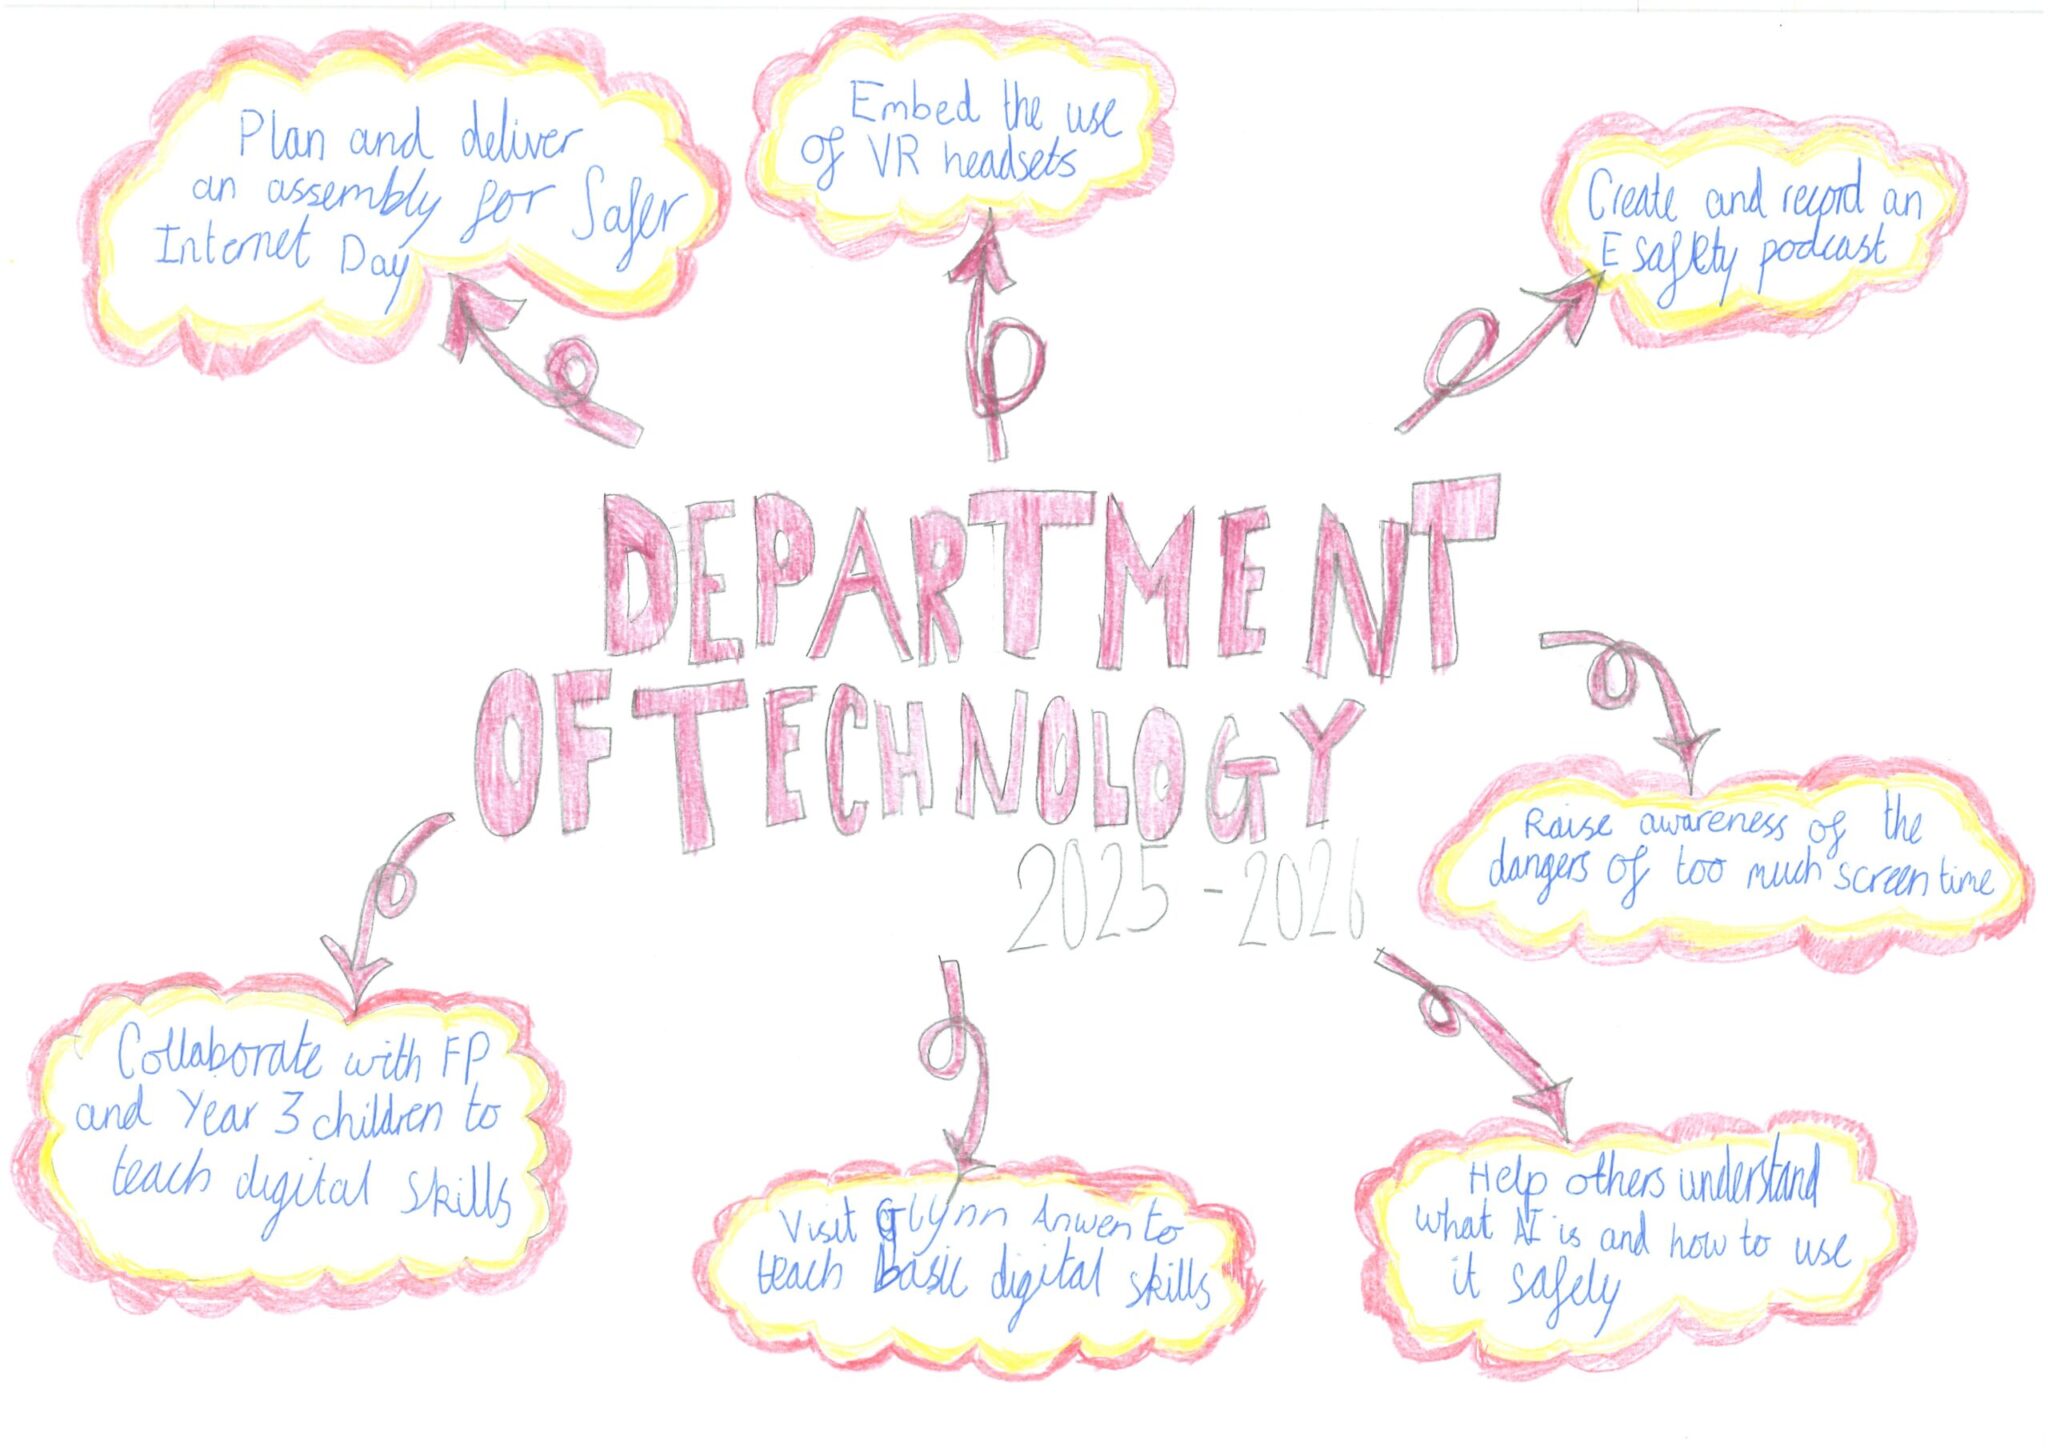 Plan and deliver
an assembly for Safer
Internet Day
Embed the use
of VR headsets
Create and record an
E safety podcast
DEPARTMENT
OF TECHNOLOGY
2025 - 2026
Raise awareness of the
dangers of too much screen time
Collaborate with FP
and Year 3 children to
teach digital skills
Visit Glynn Anwen to
teach basic digital skills
Help others understand
what AI is and how to use
it safely